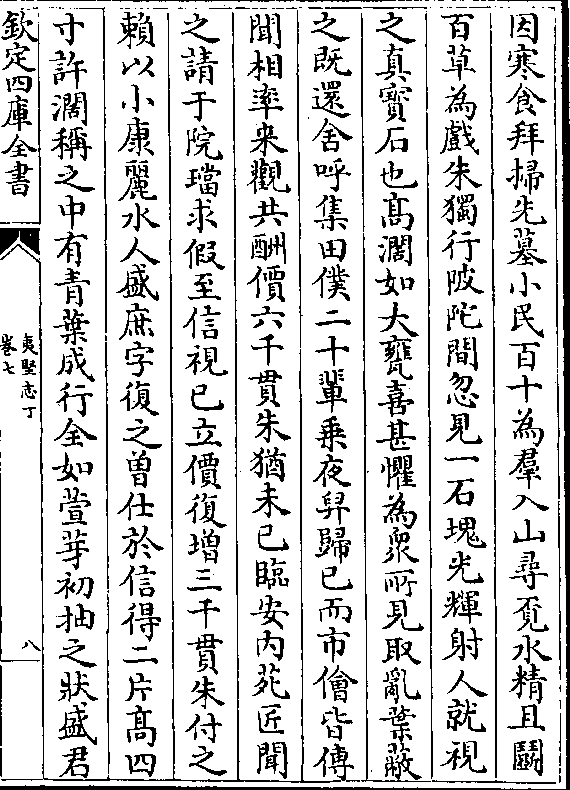 因寒食拜掃先墓小民百十為羣入山尋覔水精且鬭
百草為戲朱獨行陂陀間忽見一石塊光輝射人就視
之真寳石也髙濶如大甕喜甚懼為衆所見取亂葉蔽
之既還舍呼集田僕二十輩乗夜舁歸已而市儈皆傳
聞相率来觀共酬價六千貫朱猶未已臨安内苑匠聞
之請于院璫求假至信視已立價復増三千貫朱付之
賴以小康麗水人盛庶字復之曽仕於信得二片髙四
寸許濶稱之中有青葉成行全如萱芽初抽之狀盛君
欽定四庫全書
夷堅志丁
卷七
八